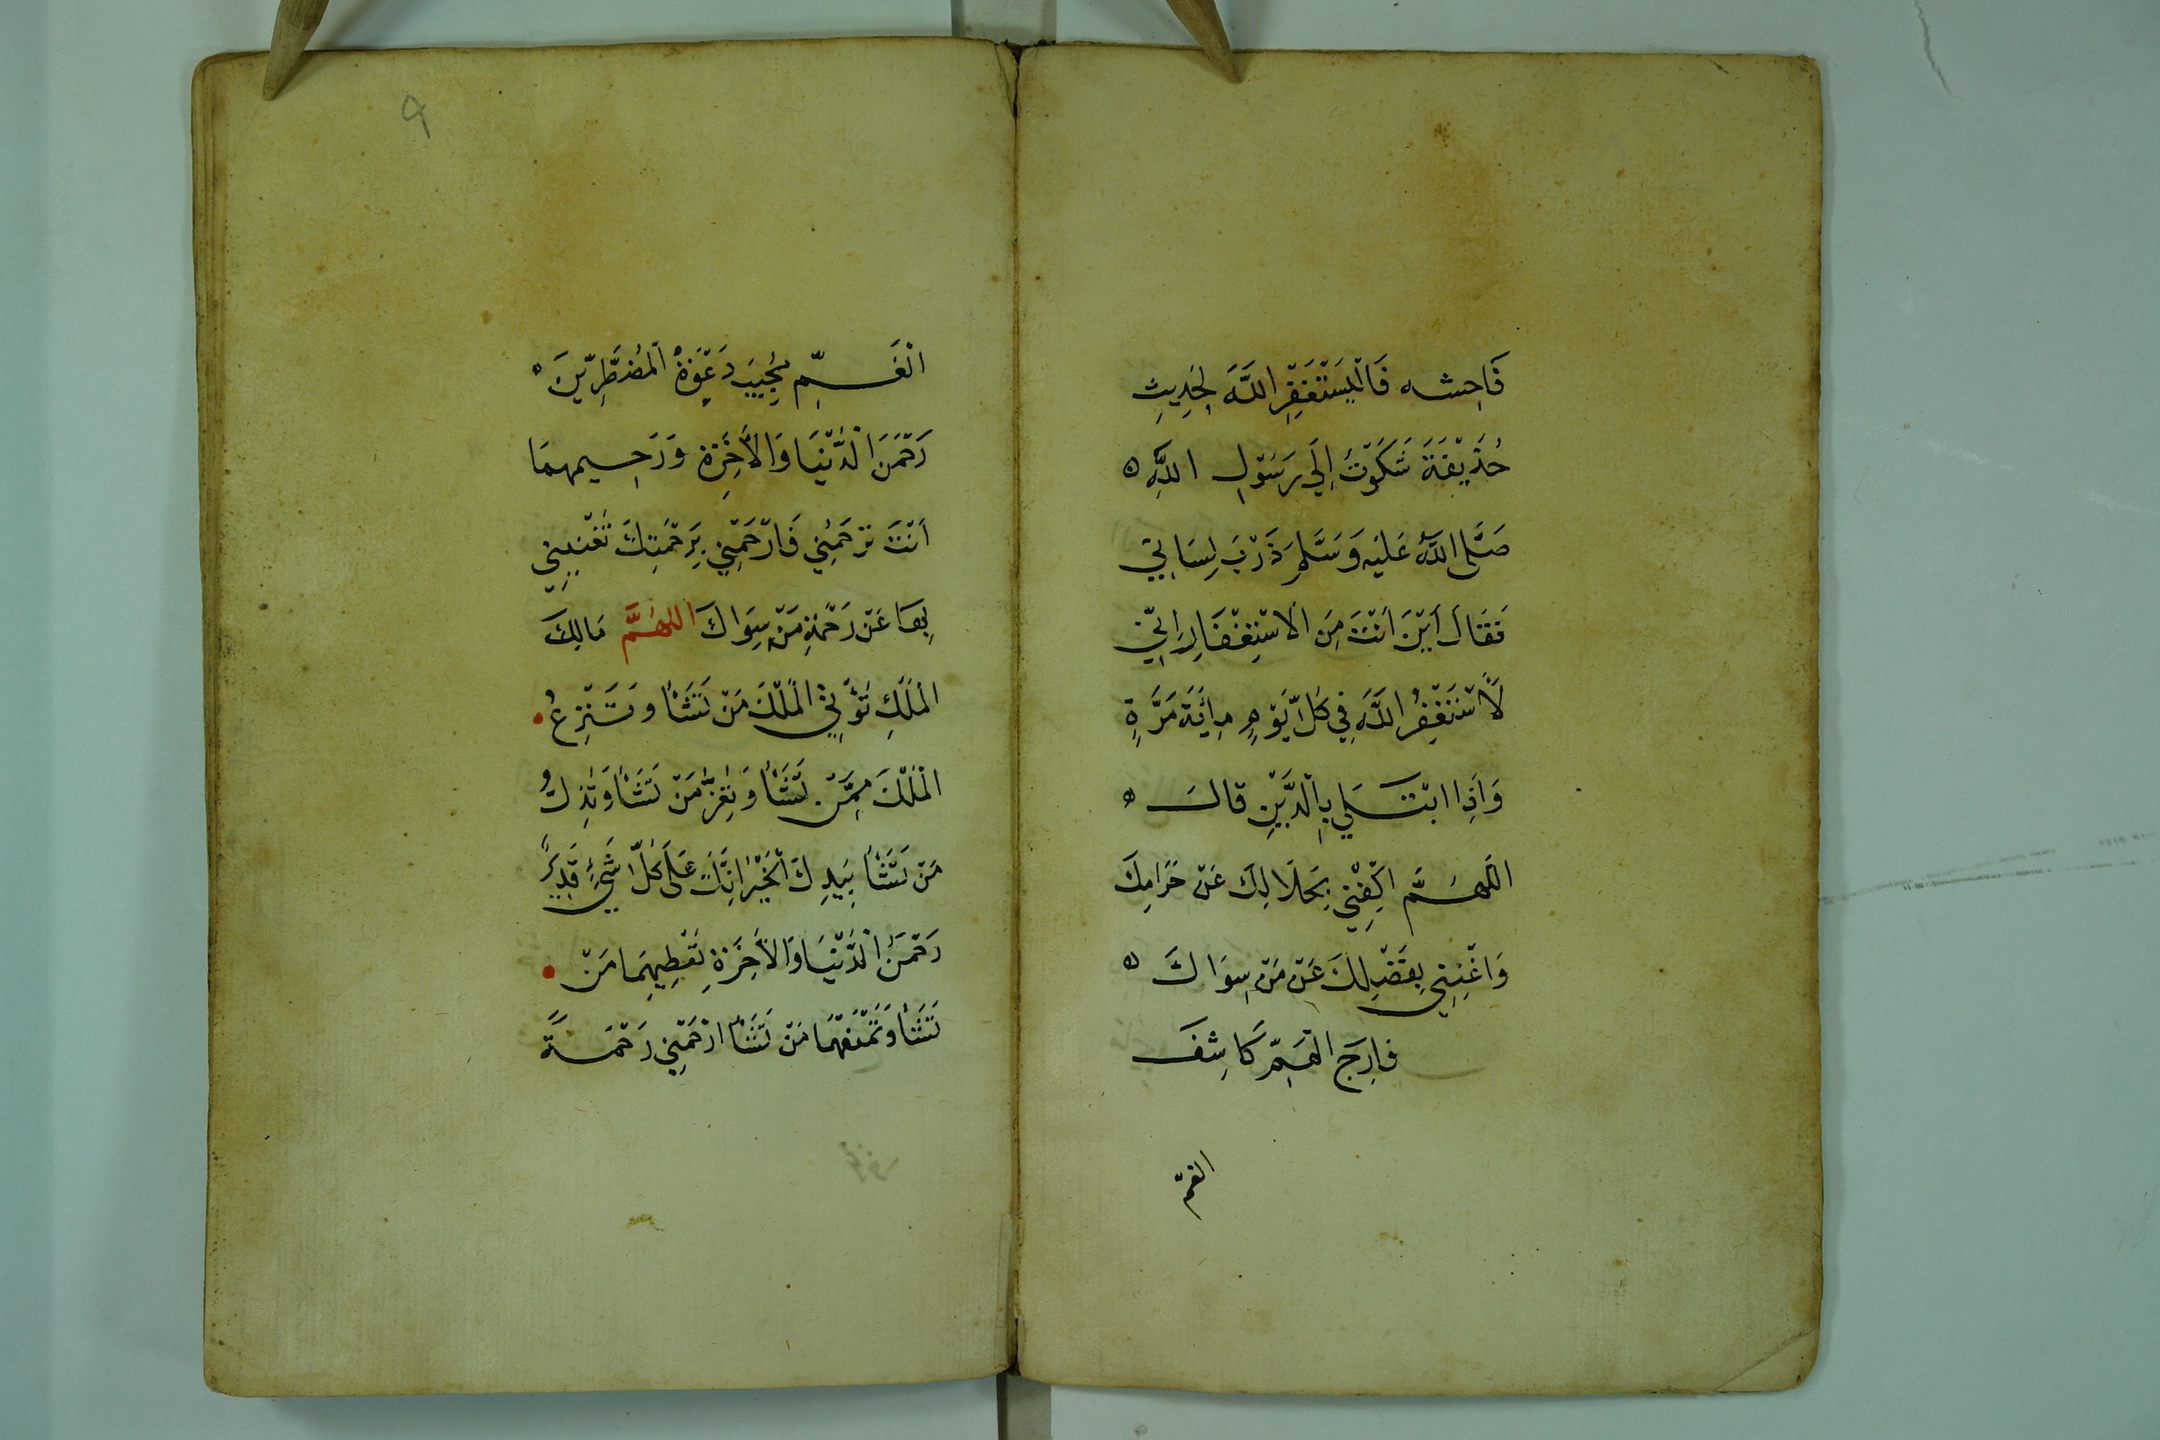 فَاحِشه فَالْيَسْتَغْفِرِ اللَّهَ لِحَدِيثِ
حُذَيْفَةَ شَكَوْتُ اِلَي رَسُوْلِ اللَّهِ ه
صَلَّى اللَّهُ عَلَيْه وَسَلَّمَ ذَرْبَ لِسَانِي
فَقَالَ أَيْنَ اَنْتَ مِنَ الْاسْتِغْفَارِ اِنِّي
لَأَسْتَغْفِرُ اللَّهَ فِي كُلِّ يَوْمٍ مِائَةَ مَرَّةٍ
وَاِذَا ابْتَلِي بِالْدَّيْنِ قالَ ه
اللَّهُمَّ اكْفِنْي بِحَلَالِكَ عَنْ حَرَامِكَ
وَاغْنِنِي بِفَضْلِكَ عَنْ مَنْ سِوَاكَ ه
فارِجَ الْهَمِّ كَاشِفَ
الغمّ
الْغَمِّ مُجِيبَ دَعْوَةِ الْمُضْطَرِّينَ ه
رَحْمَنَ الْدُّنْيَا وَالْأَخِرَةِ وَرَحِيمهمَا
اَنْتَ تَرْحَمُنِي فَارْحَمْنِي بِرَحْمَتِكَ تُغْنِينِي
بِهَا عَنْ رَحْمَةِ مَنْ سِوَاكَ اللهُمَّ مَالِكَ
الْمُلْكِ تُؤْتِي الْمُلْكَ مَنْ تَشَأُ وَتَنْزِعُ
الْمُلْكَ مِمَّنْ تَشَأُ وَتُعِزُّ مَنْ تَشَأُ وَتُذِلُّ
مَنْ تَشَأُ بِيَدِكَ الْخَيْرُ اِنَّكَ عَلَى كُلِّ شَيْءٍ قَدِيرٌ
رَحْمَنَ الْدُّنْيَا وَالْأَخِرَةِ تُعْطِيهِمَا مَنْ
تَشَأُ وَتَمْنَعْهُمَا مَنْ تَشَأُ ارْحَمْنِي رَحْمَةً